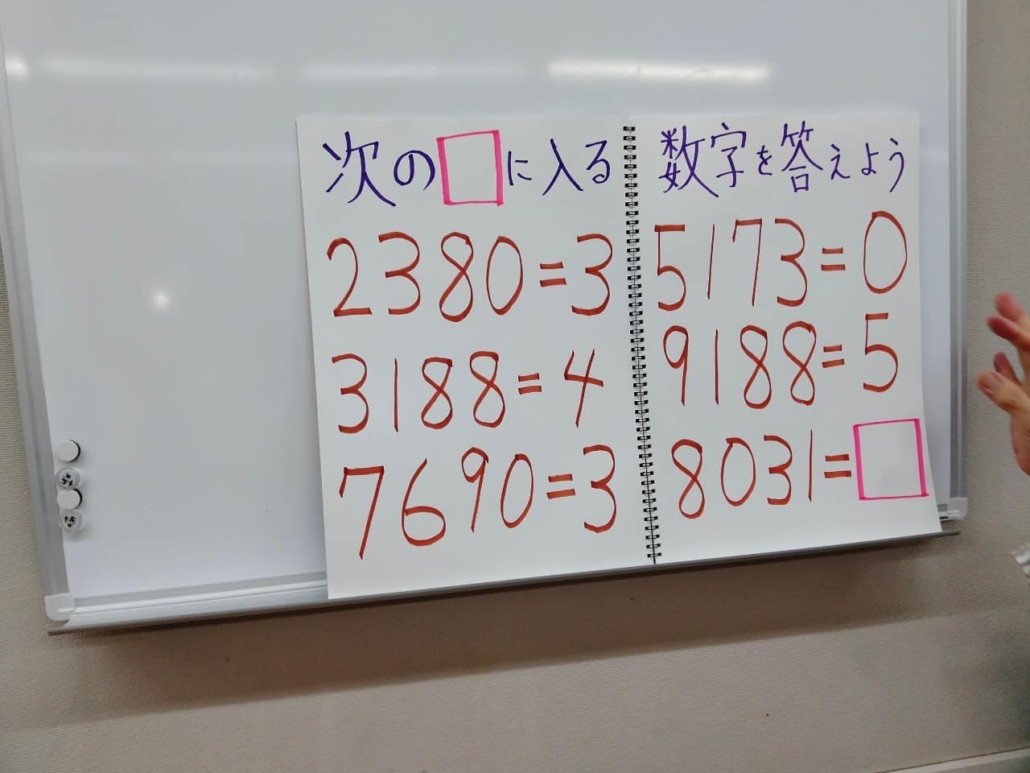 次の□に入る 数字を答えよう
2380=3 5173=0
3188=4 9188=5
7690=3 8031=□